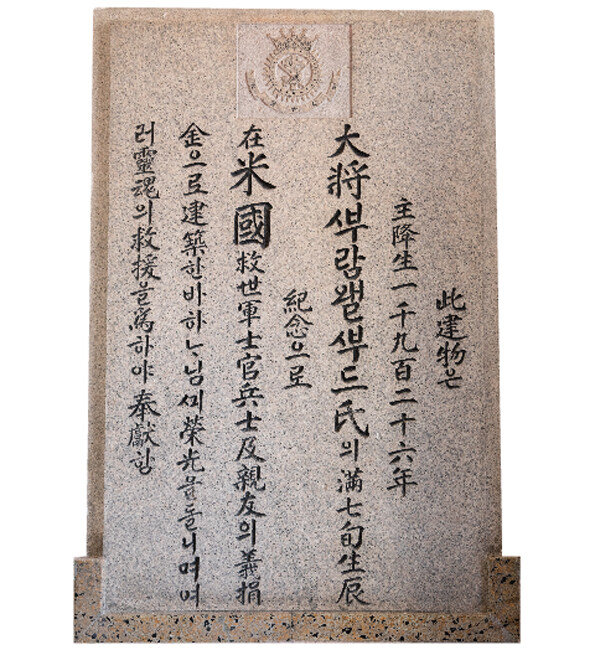 此建物은
主降生一千九百二十六年
大將ᄲᅮ람왤ᄲᅮ드氏의滿七旬生辰
紀念으로
在米國救世軍士官兵士及親友의義捐
金으로建築한바하ᄂᆞ님ᄭᅴ榮光을돌니며여
러靈魂의救援을爲하야奉獻함